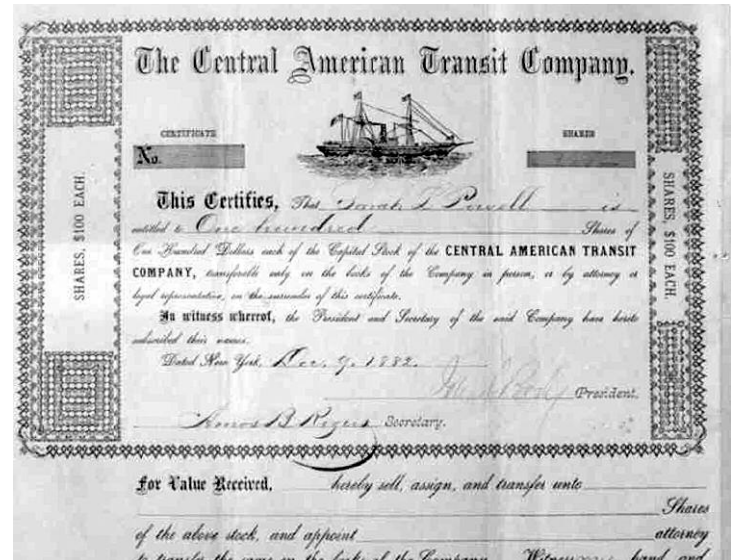 The Central American Transit Company.
CERTIFICATE
SHARES
No.
SHARES, $100 EACH.
SHARES, $100 EACH.
This Certifies, That Sarah L Powell is
entitled to One hundred Shares of
One Hundred Dollars each of the Capital Stock of the CENTRAL AMERICAN TRANSIT
COMPANY, transferable only on the books of the Company in person, or by attorney or
legal representative, on the surrender of this certificate.
In witness whereof, the President and Secretary of the said Company have hereto
subscribed their names.
Dated New York, Dec. 9. 1882.
President.
Amos B Rogers Secretary.
For Value Received, hereby sell, assign, and transfer unto
Shares
of the above stock, and appoint attorney
to transfer the same on the books of the Company. Witness my hand and